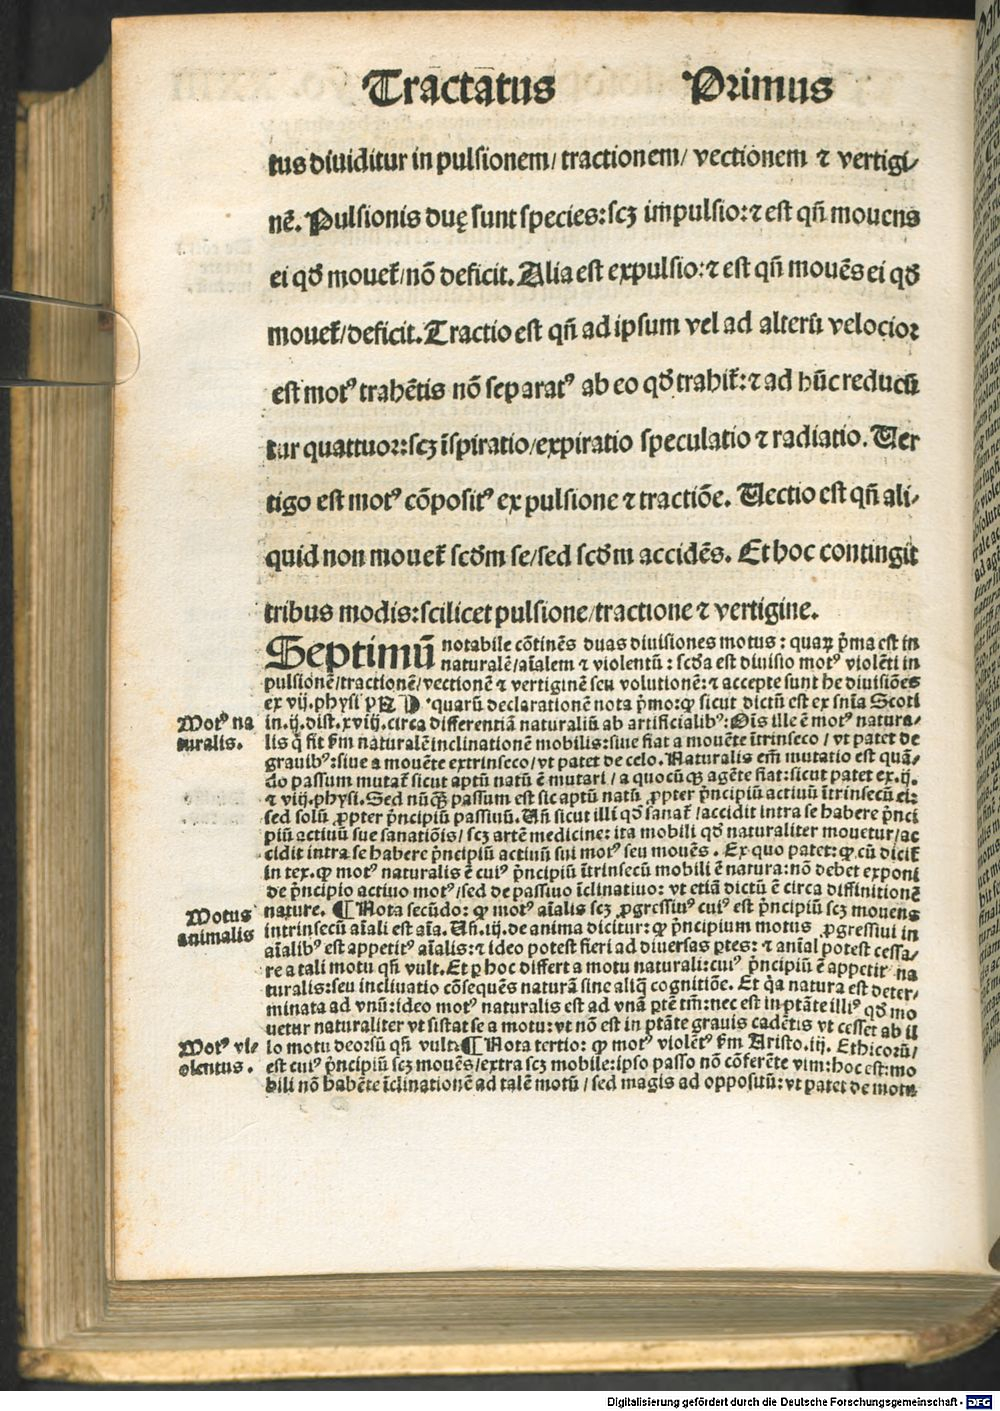 Tractatus Primus
tus diuiditur in pulsionem/ tractionem/ vectionem ⁊ vertigi/
nē. Pulsionis duę sunt species: scꝫ impulsio: ⁊ est qñ mouens
ei qđ mouet᷑/ nō deficit. Alia est expulsio: ⁊ est qñ mouēs ei qđ
mouet᷑/ deficit. Tractio est qñ ad ipsum vel ad alterū velocior
est motꝰ trahētis nō separatꝰ ab eo qđ trahit᷑: ⁊ ad hūc reducū
tur quattuor: scꝫ īspiratio/ expiratio speculatio ⁊ radiatio. Uer
tigo est motꝰ cōpositꝰ ex pulsione ⁊ tractiōe. Uectio est qñ ali/
quid non mouet᷑ scđm se/ sed scđm accidēs. Et hoc contingit
tribus modis: scilicet pulsione/ tractione ⁊ vertigine.
Septimū notabile cōtinēs duas diuisiones motus: quaꝝ p̄ma est in
naturalē/ aīalem ⁊ violentū: scđa est diuisio motꝰ violēti in
pulsionē/ tractionē/ vectionē ⁊ vertiginē seu volutionē: ⁊ accepte sunt he diuisiōes
ex vij. physi quarū declarationē nota p̄mo: ꝙ sicut dictū est ex snīa Scoti
in. ij. dist. xviij. circa differentiā naturaliū ab artificialibꝰ: Oīs ille ē motꝰ natura/
lis q̄ fit fm naturalē inclinationē mobilis: siue fiat a mouēte ītrinseco / vt patet de
grauibꝰ: siue a mouēte extrinseco/ vt patet de celo. Naturalis em̄ mutatio est quā/
do passum mutat᷑ sicut aptū natū ē mutari / a quocūqꝫ agēte fiat: sicut patet ex. ij.
⁊ viij. physi. Sed nūqꝫ passum est sic aptū natū ꝓpter p̄ncipiū actiuū ītrinsecū ei:
sed solū ꝓpter p̄ncipiū passiuū. Uñ sicut illi qđ sanat᷑ /accidit intra se habere p̄nci
piū actiuū sue sanatiōis/ scꝫ artē medicine: ita mobili qđ naturaliter mouetur/ ac
cidit intra se habere p̄ncipiū actiuū sui motꝰ seu mouēs. Ex quo patet: ꝙ cū dicit᷑
in tex. ꝙ motꝰ naturalis ē cuiꝰ p̄ncipiū ītrinsecū mobili ē natura: nō debet exponi
de p̄ncipio actiuo motꝰ/ sed de passiuo īclinatiuo: vt etiā dictū ē circa diffinitionē
nature. ¶ Nota secūdo: ꝙ motꝰ aīalis scꝫ ꝓgressiuꝰ cuiꝰ est p̄ncipiū scꝫ mouens
intrinsecū aīali est aīa. Uñ. iij. de anima dicitur: ꝙ p̄ncipium motus ꝓgressiui in
aīalibꝰ est appetitꝰ aīalis: ⁊ ideo potest fieri ad diuersas ꝑtes: ⁊ anīal potest cessa/
re a tali motu qñ vult. Et ꝑ hoc differt a motu naturali: cuiꝰ p̄ncipiū ē appetitꝰ na
turalis: seu inclinatio cōsequēs naturā sine aliq̄ cognitiōe. Et q̄a natura est deter/
minata ad vnū: ideo motꝰ naturalis est ad vnā ꝑtē tm̄: nec est in ptāte illiꝰ qđ mo
uetur naturaliter vt sistat se a motu: vt nō est in ptāte grauis cadētis vt cesset ab il
lo motu deorsū qñ vult. ¶ Nota tertio: ꝙ motꝰ violētꝰ fm Aristo. iij. Ethicorū/
est cuiꝰ p̄ncipiū scꝫ mouēs/ extra scꝫ mobile: ipso passo nō cōferēte vim: hoc est: mo
bili nō habēte īclinationē ad talē motū / sed magis ad oppositū: vt patet de motu
Motꝰ na
turalis.
Motus
animalis
Motꝰ vi/
olentus.
Digitalisierung gefördert durch die Deutsche Forschungsgemeinschaft - DFG